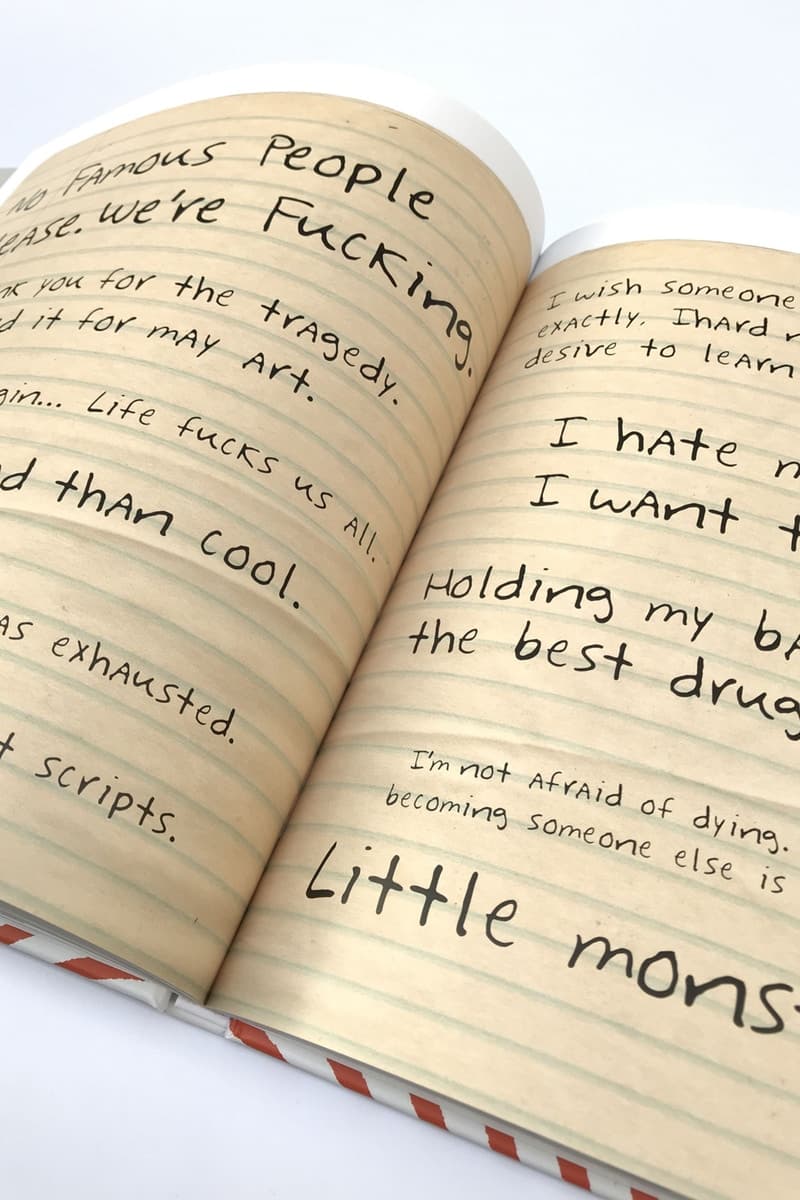 NO FAMOUS PEOPLE
EASE. We're FUCKING.
nk you for the trAgedy.
d it for mAy Art.
gin... Life fucks us All.
d thAn cool.
AS exhAusted.
t scripts.
I wish someone
exActly. IhArd
desive to leArn
I hAte
I wAnt
Holding my bA
the best drug
I'm not AfrAid of dying.
becoming someone else is
Little mons